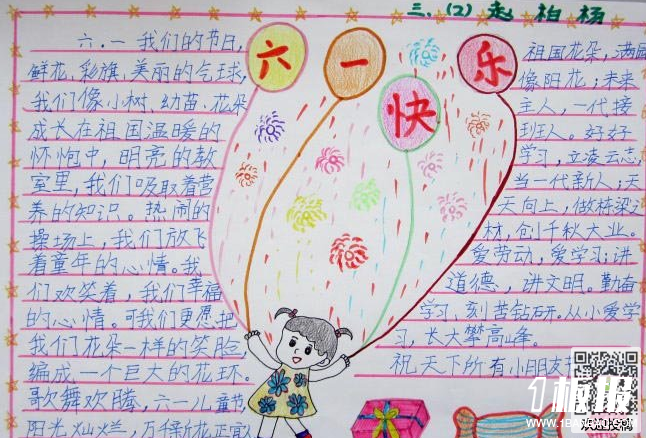 三、(2) 赵柏杨
六一快乐
六.一我们的节日,
鲜花,彩旗,美丽的气球,
我们像小树、幼苗、花朵
成长在祖国温暖的
怀抱中,明亮的教
室里,我们吸取着营
养的知识。热闹的
操场上,我们放飞
着童年的心情。我
们欢笑着,我们幸福
的心情。可我们更愿把
我们花朵一样的笑脸,
编成一个巨大的花环。
歌舞欢腾,六一儿童节
阳光灿烂,万千新花正宜人
祖国花朵,满园
像阳花;未来
主人,一代接
班人。好好
学习,立凌云志,
当一代新人;天
天向上,做栋梁之
材,创千秋大业。
爱劳动,爱学习;讲
道德,讲文明。勤奋
学习,刻苦钻研。从小爱学
习,长大攀高峰。
祝天下所有小朋友
1板报